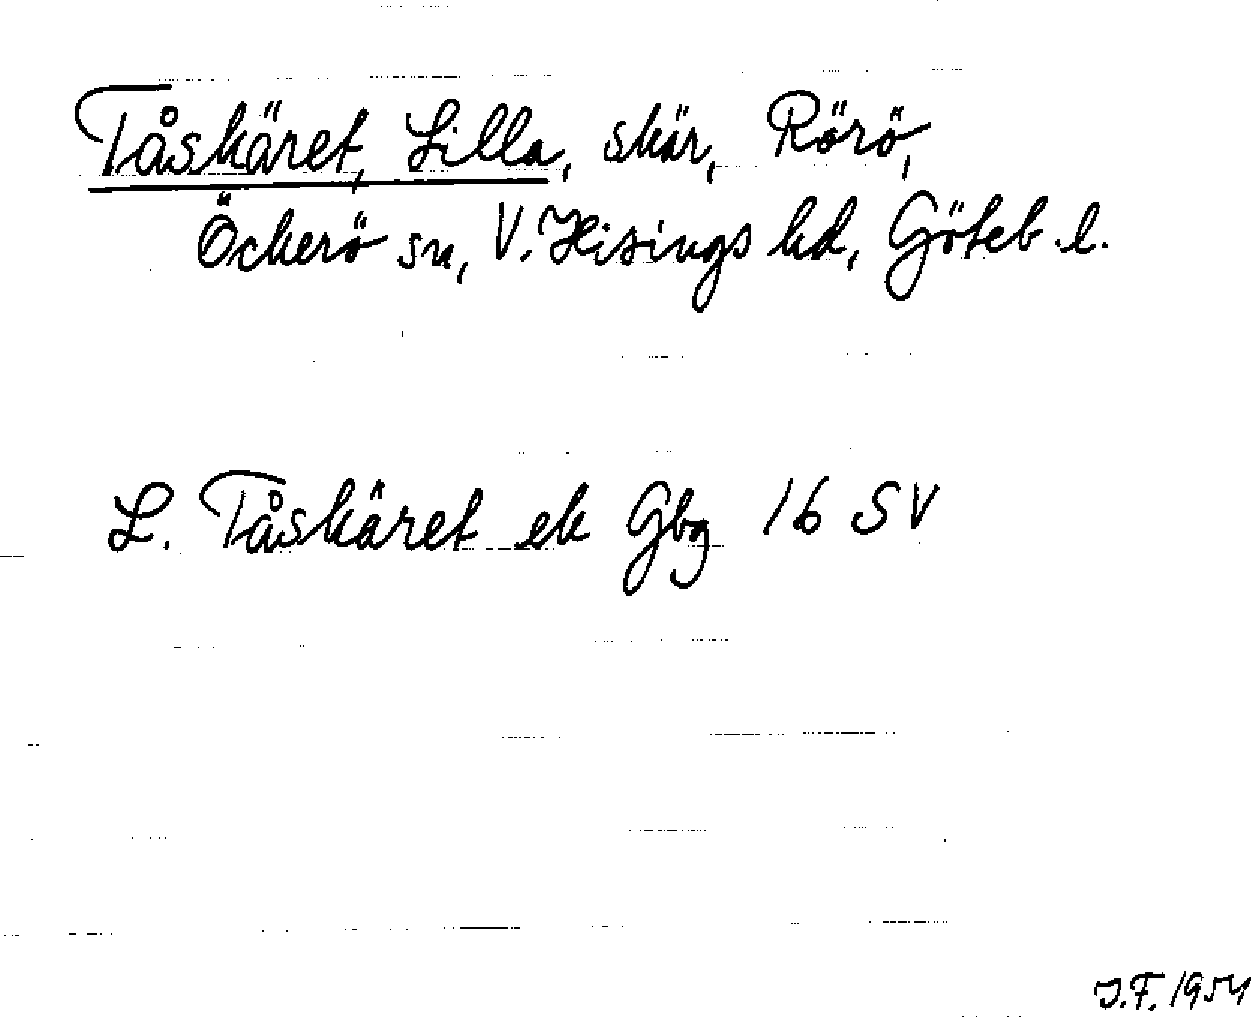 Tåskäret, Lilla, skär, Rörö,
Öckerö sn, V. Hisings hd, Göteb. l.
L. Tåskäret ek Gbg 16 SV
J.F. 1954